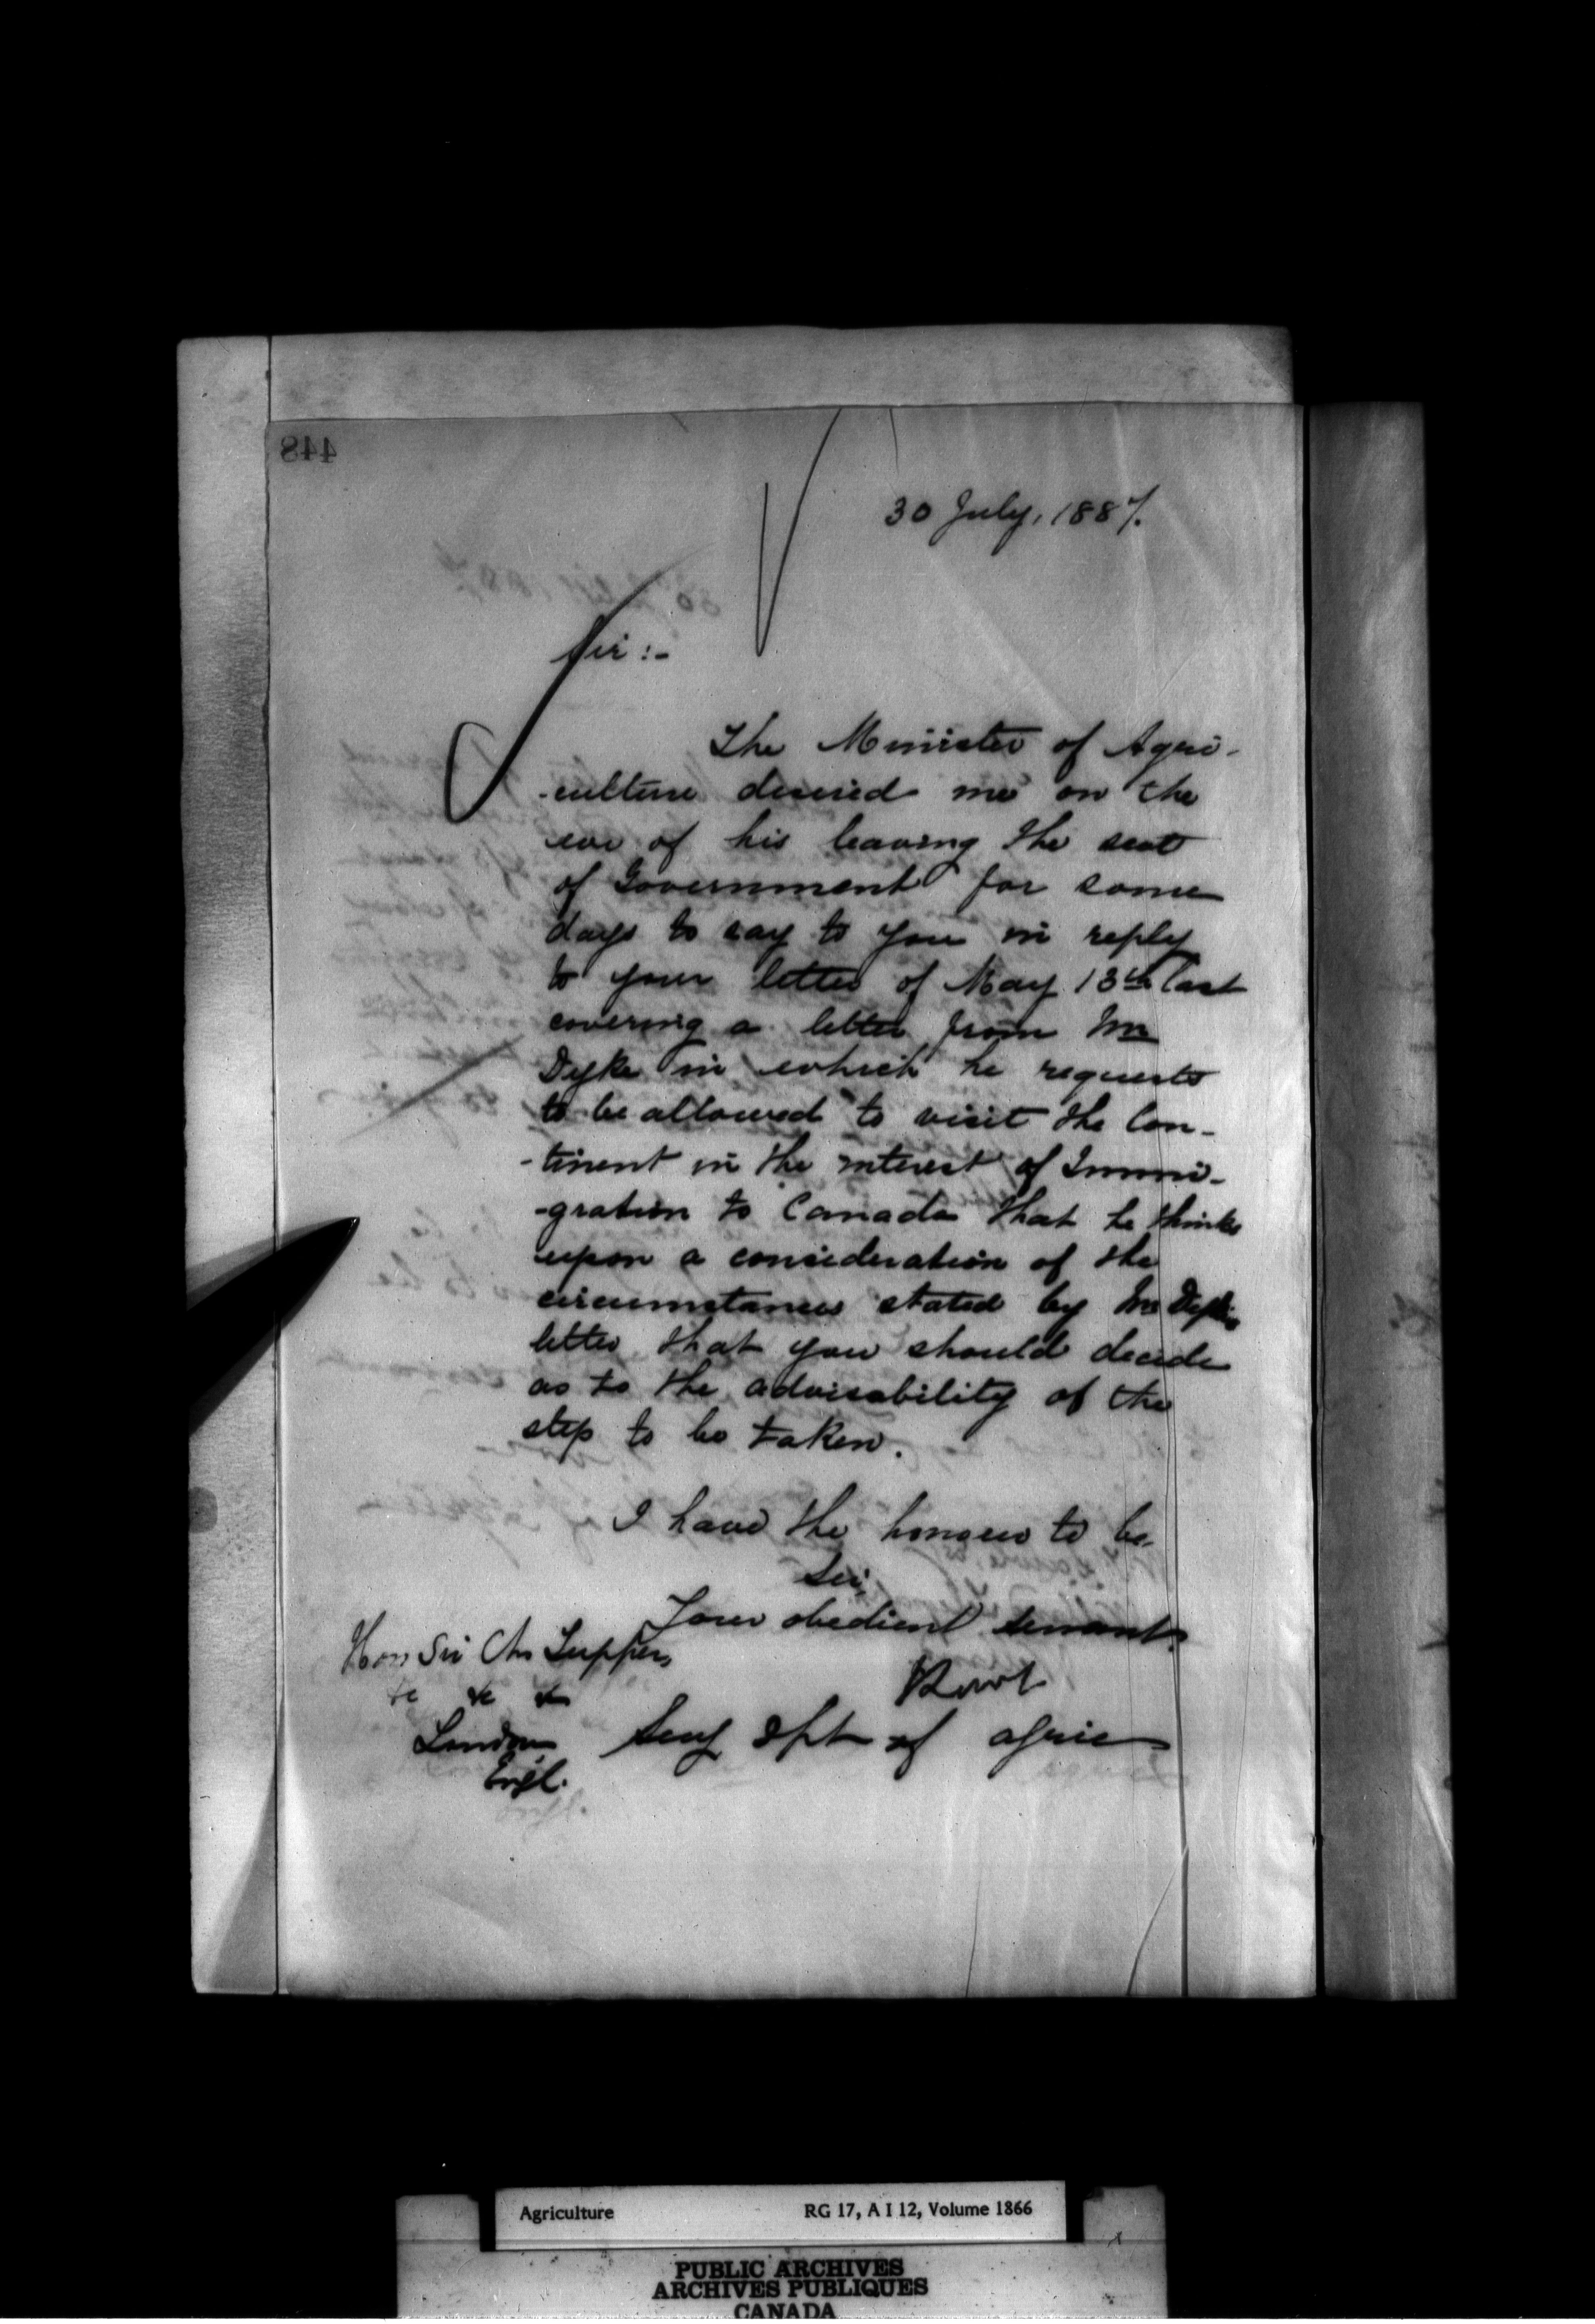 448
30 July, 1887.
Sir:-
The Minister of Agri-
-culture desired me on the
eve of his leaving the seat
of Government for some
days to say to you in reply
to your letter of May 13th last
covering a letter from Mr
Dyke in which he requests
to be allowed to visit the Con-
-tinent in the interest of Immi-
-gration to Canada that he thinks
upon a consideration of the
circumstances stated by Mr Dyke's
letter that you should decide
as to the advisability of the
step to be taken.
I have the honour to be
Sir,
Your obedient servant
Hon Sir Chs Tupper,
&c &c &c
London
Engl.
Secy Dpt of Agric
Agriculture
RG 17, A I 12, Volume 1866
PUBLIC ARCHIVES
ARCHIVES PUBLIQUES
CANADA